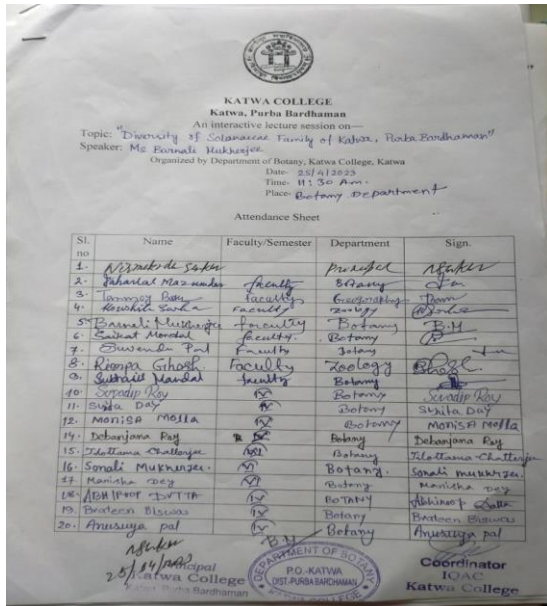 KATWA COLLEGE
Katwa, Purba Bardhaman
An interactive lecture session on—
Topic: "Diversity of Solanaceae Family of Katwa, Purba Bardhaman"
Speaker: Ms Barnali Mukherjee
Organized by Department of Botany, Katwa College, Katwa
Date- 25/4/2023
Time- 11:30 Am.
Place- Botany Department
Attendance Sheet
Sl. no Name Faculty/Semester Department Sign.
1. Principal
2. Jaharlal Mazumdar faculty Botany
3. Tanmoy faculty Geography
4. Koushik Sarkar Faculty Zoology
5. Barnali Mukherjee faculty Botany B.M
6. Saikat Mondal faculty. Botany
7. Suvendu Pal Faculty Botany
8. Ghosh Faculty Zoology
9. Mandal faculty Botany
10. Suvadip Roy IV Botany Suvadip Roy
11. Sujita Day IV Botany Sujita Day
12. Monisa Molla IV Botany Monisa Molla
14. Debanjana Roy Botany Debanjana Roy
15. Tilottama Chatterjee Botany Tilottama Chatterjee
16. Sonali Mukherjee. Botany. Sonali Mukherjee
17 Manisha Dey Botany Manisha Dey
18. DUTTA IV BOTANY Dutta
19. Biswas IV Botany Biswas
20. Anusuya pal IV Botany Anusuya pal
B.M
25/04/2023
Principal
Katwa College
Purba Bardhaman
DEPARTMENT OF BOTANY
P.O.-KATWA
DIST.-PURBA BARDHAMAN
KATWA COLLEGE
Coordinator
IQAC
Katwa College